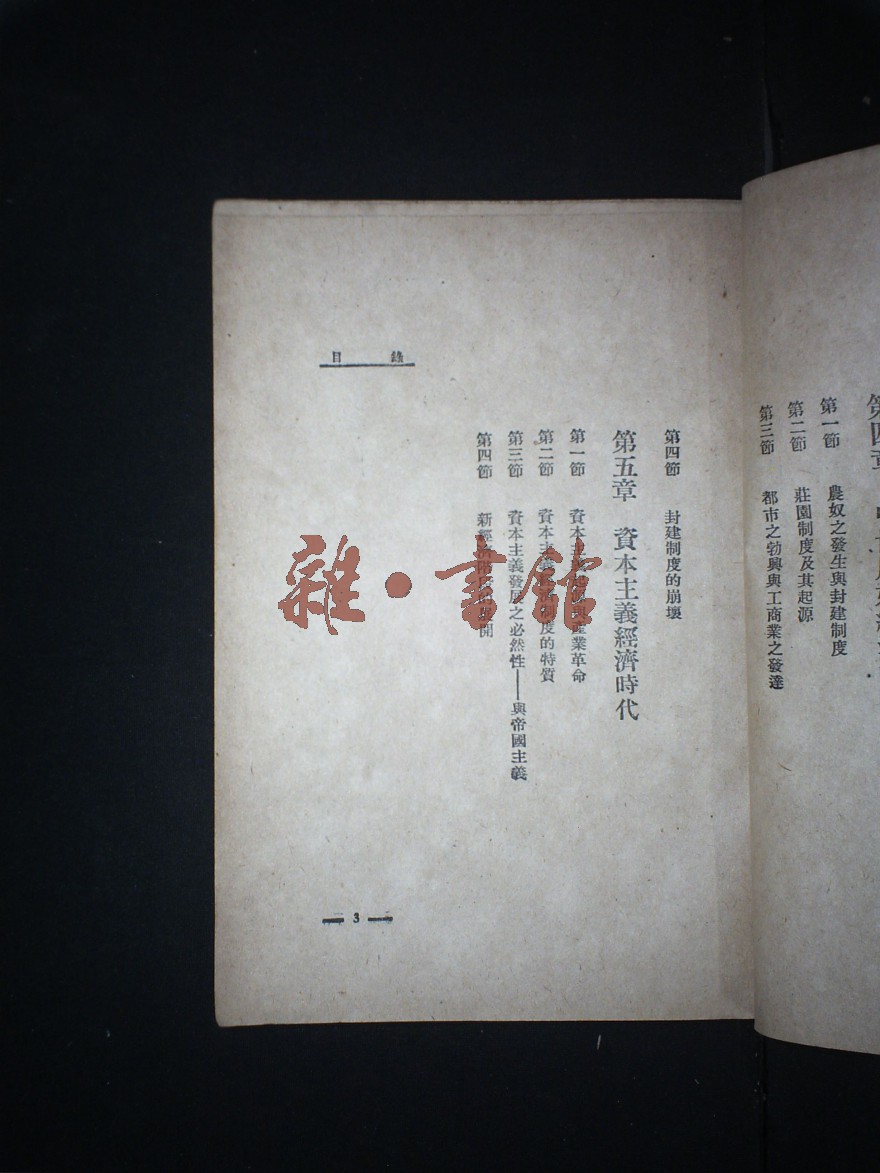 第四章
第一節 農奴之發生與封建制度
第二節 莊園制度及其起源
第三節 都市之勃興與工商業之發達
目錄
第四節 封建制度的崩壞
第五章 資本主義經濟時代
第一節 資本主義 與產業革命
第二節 資本主義經濟制度的特質
第三節 資本主義發展之必然性——與帝國主義
第四節 新經濟 開
3
雜·書館